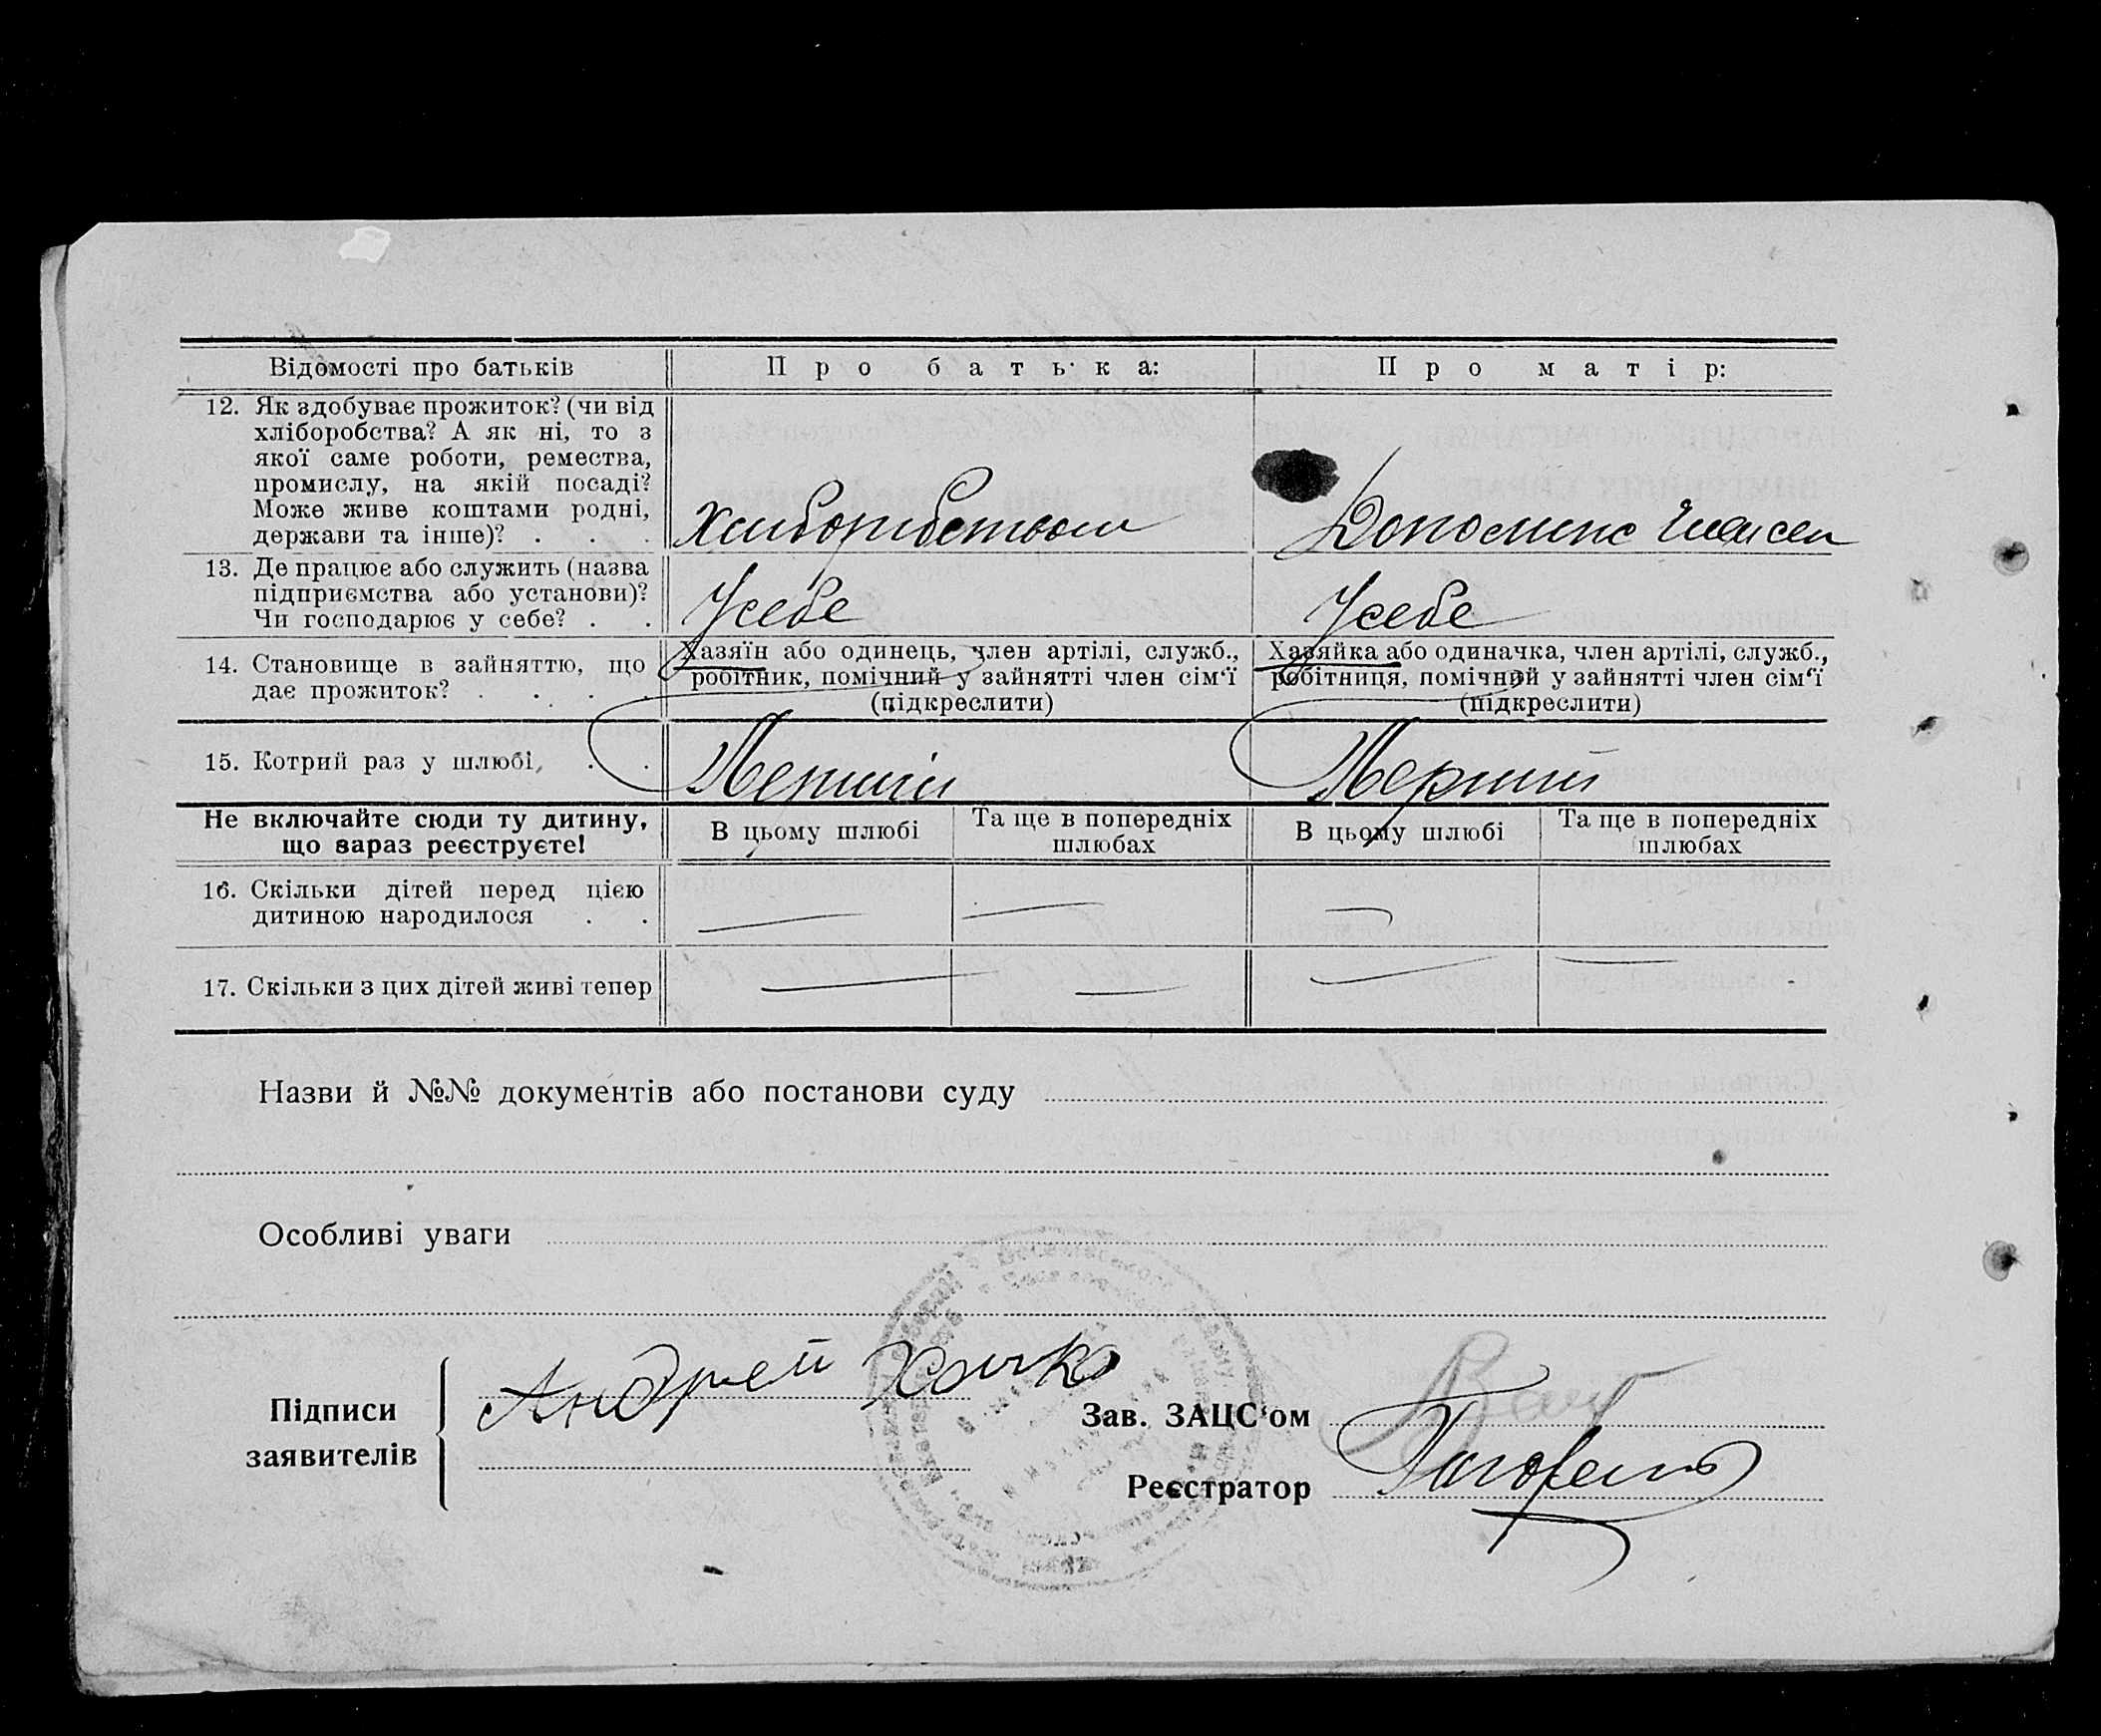 Відомості про батьків
Про батька:
Про матір:
12. Як здобуває прожиток? (чи від
хліборобства? А як ні, то з
якої саме роботи, ремества,
промислу, на якій посаді?
Може живе коштами родні,
держави та інше)? . . .
Допомичс
13. Де працює або служить (назва
підприємства або установи)?
Чи господарює у себе? . .
Усебе
Усебе
14. Становище в зайняттю, що
дає прожиток? . . . .
Хазяїн або одинець, член артілі, служб.,
робітник, помічний у зайнятті член сім'ї
(підкреслити)
Хазяйка або одиначка, член артілі, служб.,
робітниця, помічний у зайнятті член сім'ї
(підкреслити)
15. Котрий раз у шлюбі, . .
Перший
Перший
Не включайте сюди ту дитину,
що зараз реєструєте!
В цьому шлюбі
Та ще в попередніх
шлюбах
В цьому шлюбі
Та ще в попередніх
шлюбах
16. Скільки дітей перед цією
дитиною народилося . .
— — —
17. Скільки з цих дітей живі тепер
— — — —
Назви й №№ документів або постанови суду
Особливі уваги
Підписи
заявителів
Андрей Хичко
Зав. ЗАЦС'ом
Реєстратор